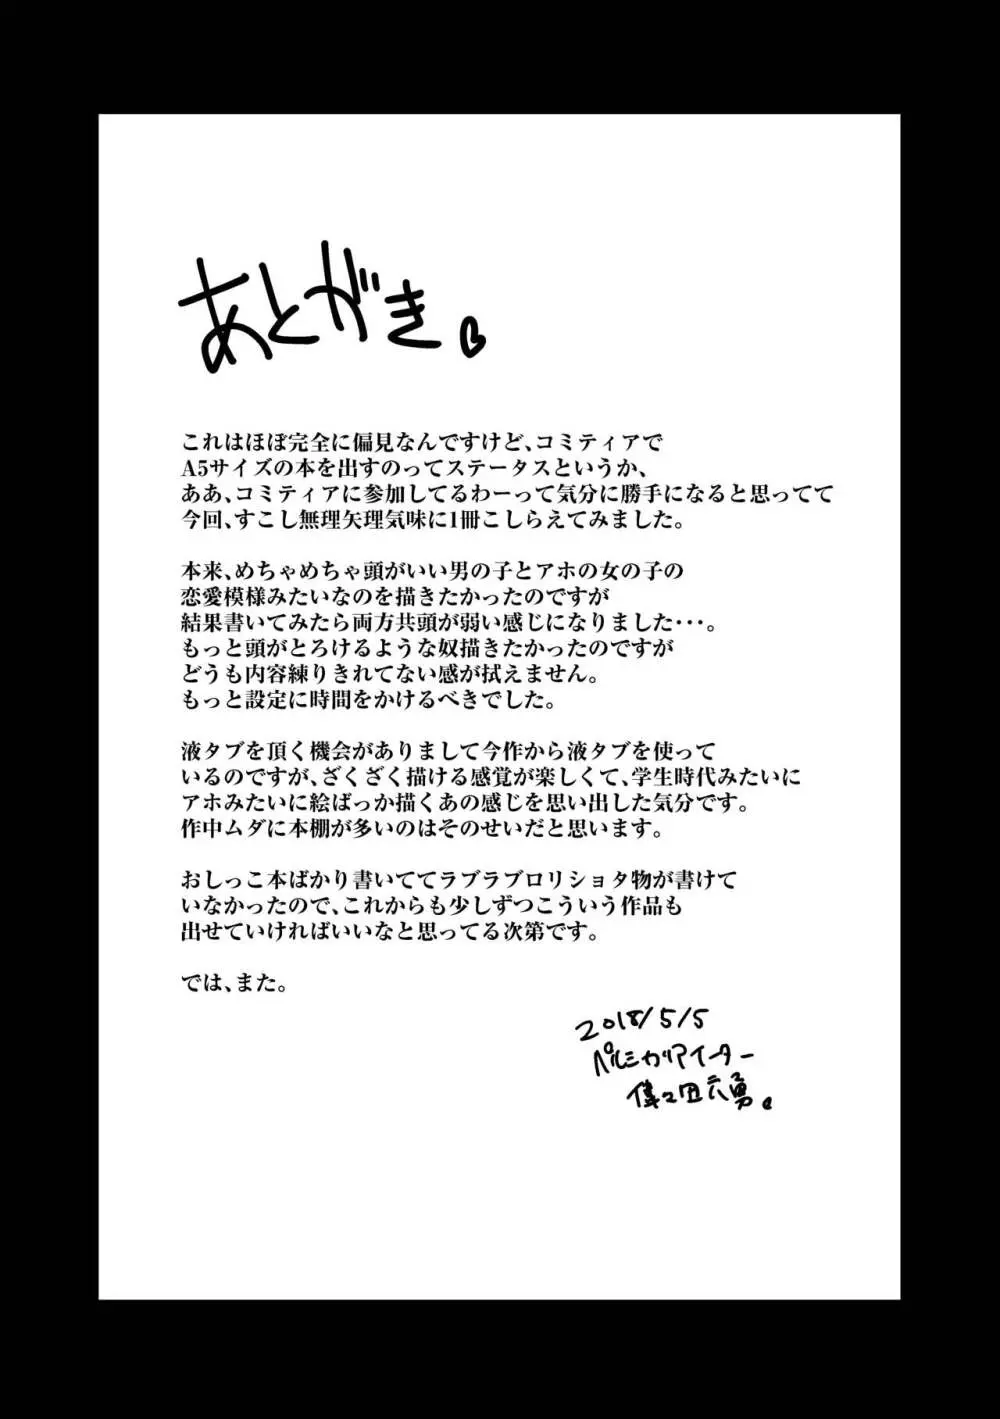 あとがき。
これはほぼ完全に偏見なんですけど、コミティアで
A5サイズの本を出すのってステータスというか、
ああ、コミティアに参加してるわーって気分に勝手になると思ってて
今回、すこし無理矢理気味に1冊こしらえてみました。
本来、めちゃめちゃ頭がいい男の子とアホの女の子の
恋愛模様みたいなのを描きたかったのですが
結果書いてみたら両方共頭が弱い感じになりました･･･。
もっと頭がとろけるような奴描きたかったのですが
どうも内容練りきれてない感が拭えません。
もっと設定に時間をかけるべきでした。
液タブを頂く機会がありまして今作から液タブを使って
いるのですが、ざくざく描ける感覚が楽しくて、学生時代みたいに
アホみたいに絵ばっか描くあの感じを思い出した気分です。
作中ムダに本棚が多いのはそのせいだと思います。
おしっこ本ばかり書いててラブラブロリショタ物が書けて
いなかったので、これからも少しずつこういう作品も
出せていければいいなと思ってる次第です。
では、また。
2018/5/5
パルミガリアイーター